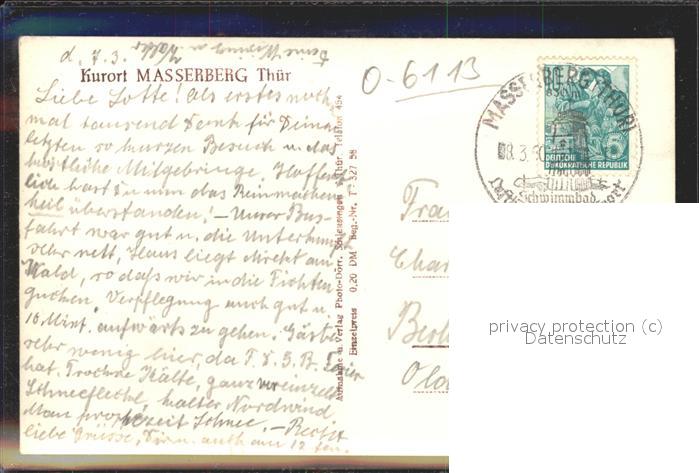 d. 7. 3.
Kurort MASSERBERG Thür
O-6113
MASSERBERG (THÜR)
08.3.60
Schwimmbad
DEUTSCHE
DEMOKRATISCHE REPUBLIK
5
Liebe Lotte! als erstes noch
mal tausend Dank für Deinen
letzten so kurzen Besuch u. das
köstliche Mitgebringe. Hoffent
lich hast Du nun das Reinmachen
heil überstanden! – Unsre Bus-
fahrt war gut u. die Unterkunft
sehr nett, Haus liegt direkt am
Wald, so daß wir in die Fichten
gucken. Verpflegung auch gut u.
10 Mint. aufwärts zu gehen. Gäste
sehr wenig hier, da
hat. Trockne Kälte, ganz vereinzelt
Schneeflecke, kalter Nordwind
Man prophezeit Schnee. –
liebe Grüsse, auch am 12
Aufnahme u. Verlag Photo-Dörr, Schleusingen i. Thür. Telefon 454
Einzelpreis 0,20 DM Reg.-Nr. T 327 58
Frau
Char
Berl
Old
privacy protection (c)
Datenschutz